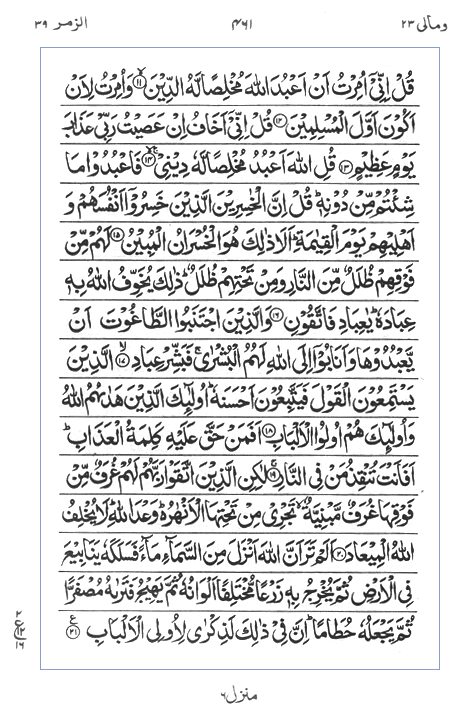 ومالی ٢٣ ٤٦١ الزمر ٣٩
قُلْ اِنِّیْۤ اُمِرْتُ اَنْ اَعْبُدَ اللّٰهَ مُخْلِصًا لَّهُ الدِّیْنَ ﴿۱۱﴾ وَاُمِرْتُ لِاَنْ
اَكُوْنَ اَوَّلَ الْمُسْلِمِیْنَ ﴿۱۲﴾ قُلْ اِنِّیْۤ اَخَافُ اِنْ عَصَیْتُ رَبِّیْ عَذَابَ
یَوْمٍ عَظِیْمٍ ﴿۱۳﴾ قُلِ اللّٰهَ اَعْبُدُ مُخْلِصًا لَّهٗ دِیْنِیْ ﴿۱۴﴾ فَاعْبُدُوْا مَا
شِئْتُمْ مِّنْ دُوْنِهٖ ؕ قُلْ اِنَّ الْخٰسِرِیْنَ الَّذِیْنَ خَسِرُوْۤا اَنْفُسَهُمْ وَ
اَهْلِیْهِمْ یَوْمَ الْقِیٰمَةِ ؕ اَلَا ذٰلِكَ هُوَ الْخُسْرَانُ الْمُبِیْنُ ﴿۱۵﴾ لَهُمْ مِّنْ
فَوْقِهِمْ ظُلَلٌ مِّنَ النَّارِ وَمِنْ تَحْتِهِمْ ظُلَلٌ ؕ ذٰلِكَ یُخَوِّفُ اللّٰهُ بِهٖ
عِبَادَهٗ ؕ یٰعِبَادِ فَاتَّقُوْنِ ﴿۱۶﴾ وَالَّذِیْنَ اجْتَنَبُوا الطَّاغُوْتَ اَنْ
یَّعْبُدُوْهَا وَاَنَابُوْۤا اِلَی اللّٰهِ لَهُمُ الْبُشْرٰی ۚ فَبَشِّرْ عِبَادِ ﴿۱۷﴾ الَّذِیْنَ
یَسْتَمِعُوْنَ الْقَوْلَ فَیَتَّبِعُوْنَ اَحْسَنَهٗ ؕ اُولٰٓئِكَ الَّذِیْنَ هَدٰىهُمُ اللّٰهُ
وَاُولٰٓئِكَ هُمْ اُولُوا الْاَلْبَابِ ﴿۱۸﴾ اَفَمَنْ حَقَّ عَلَیْهِ كَلِمَةُ الْعَذَابِ ؕ
اَفَاَنْتَ تُنْقِذُ مَنْ فِی النَّارِ ﴿۱۹﴾ لٰكِنِ الَّذِیْنَ اتَّقَوْا رَبَّهُمْ لَهُمْ غُرَفٌ مِّنْ
فَوْقِهَا غُرَفٌ مَّبْنِیَّةٌ ۙ تَجْرِیْ مِنْ تَحْتِهَا الْاَنْهٰرُ ؕ وَعْدَ اللّٰهِ ؕ لَا یُخْلِفُ
اللّٰهُ الْمِیْعَادَ ﴿۲۰﴾ اَلَمْ تَرَ اَنَّ اللّٰهَ اَنْزَلَ مِنَ السَّمَآءِ مَآءً فَسَلَكَهٗ یَنَابِیْعَ
فِی الْاَرْضِ ثُمَّ یُخْرِجُ بِهٖ زَرْعًا مُّخْتَلِفًا اَلْوَانُهٗ ثُمَّ یَهِیْجُ فَتَرٰىهُ مُصْفَرًّا
ثُمَّ یَجْعَلُهٗ حُطَامًا ؕ اِنَّ فِیْ ذٰلِكَ لَذِكْرٰی لِاُولِی الْاَلْبَابِ ﴿۲۱﴾
٢
ع
١٢
١٦
منزل ٦